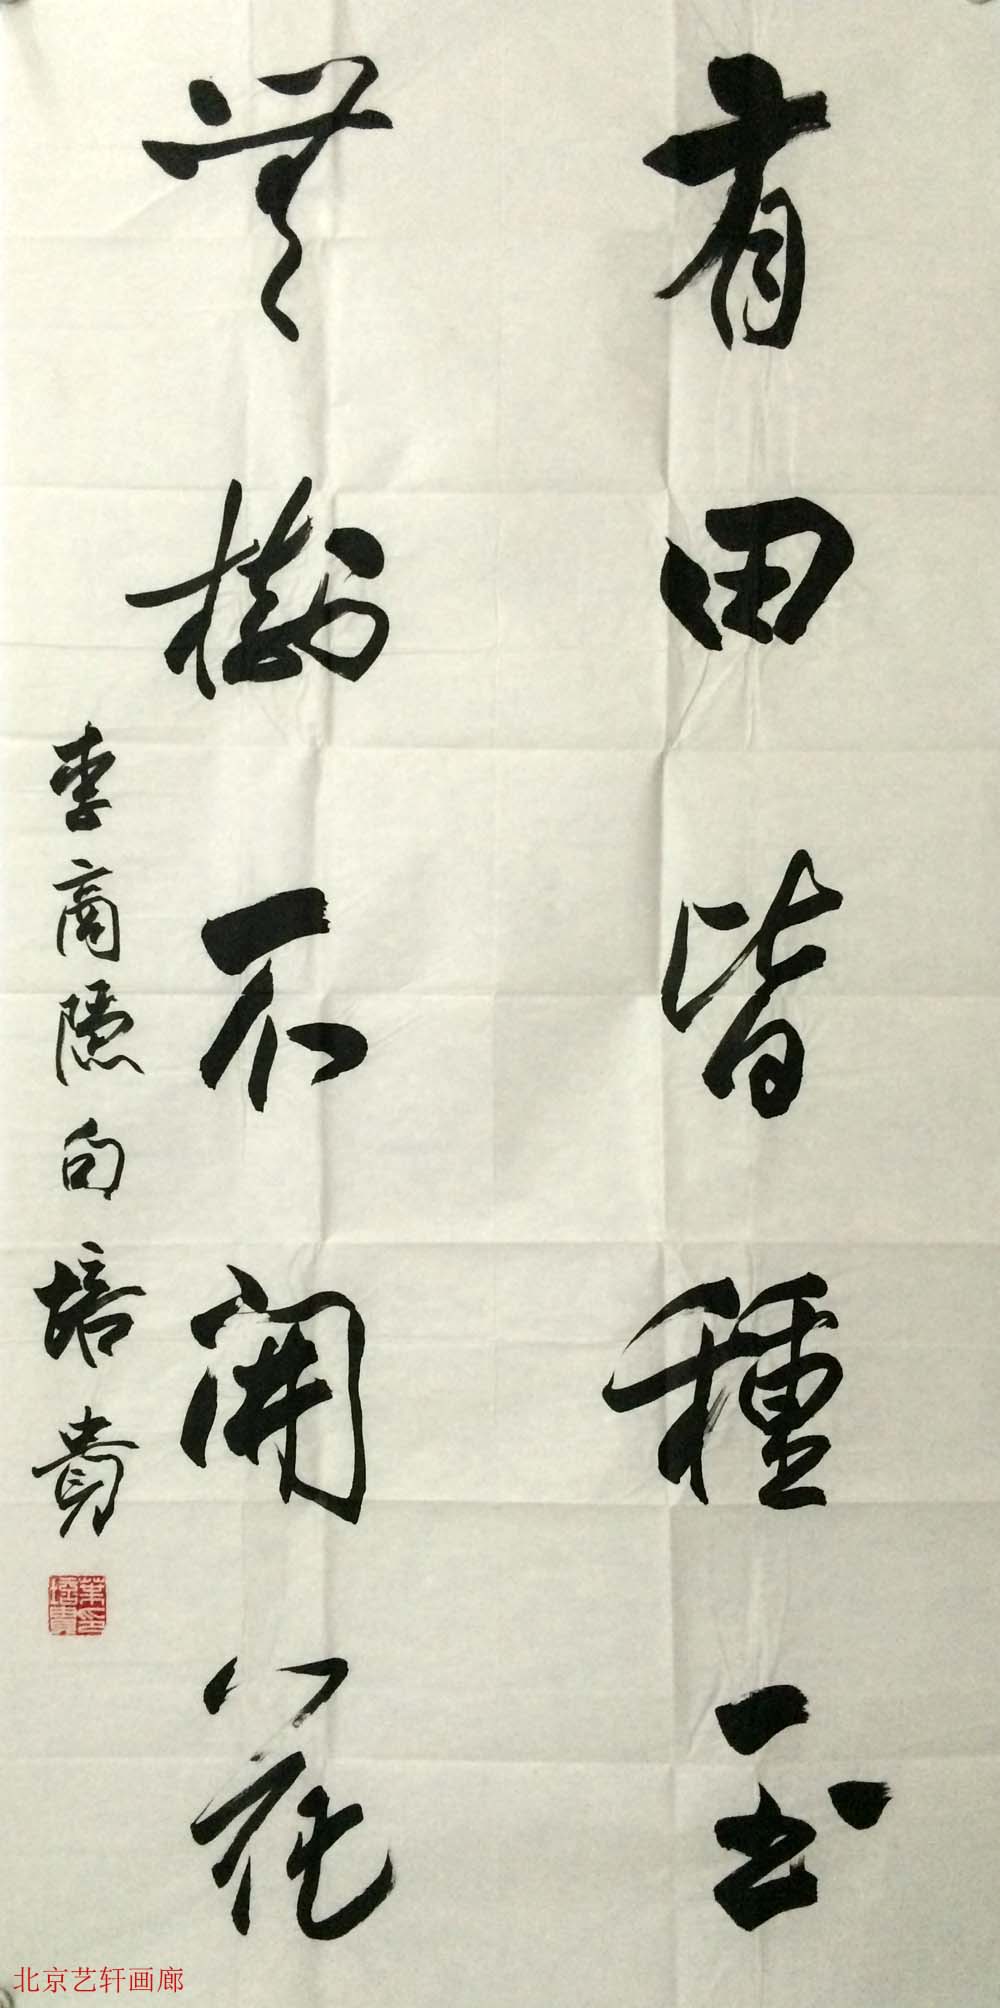 有田皆種玉
無樹不開花
李商隱句 培貴
北京艺轩画廊